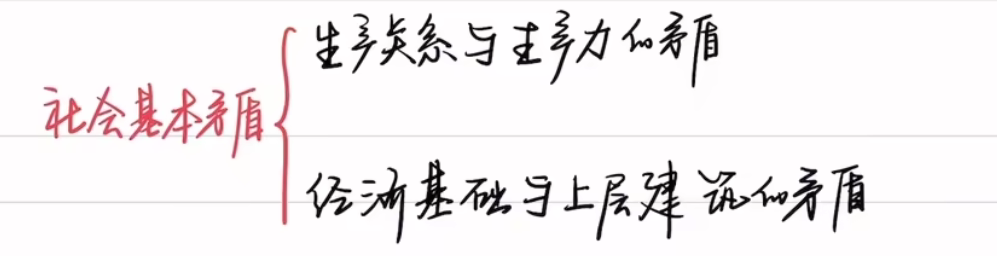 社会基本矛盾
生产关系与生产力的矛盾
经济基础与上层建筑的矛盾